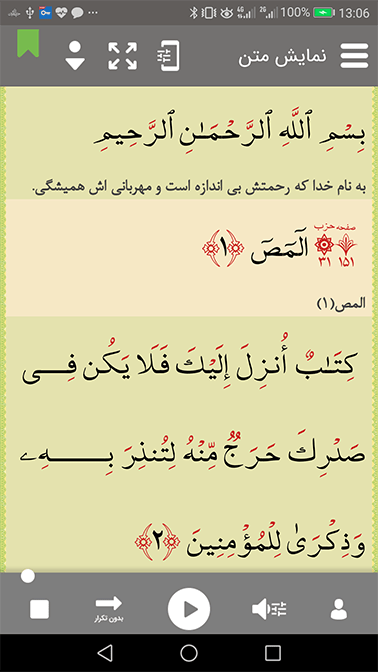 100% 13:06
نمایش متن
بِسْمِ ٱللَّهِ ٱلرَّحْمَـٰنِ ٱلرَّحِیمِ
به نام خدا که رحمتش بی اندازه است و مهربانی اش همیشگی.
صفحه حزب
۱۵۱ ۳۱
الٓمٓصٓ ﴿۱﴾
المص(۱)
کِتَـٰبٌ أُنزِلَ إِلَیْكَ فَلَا یَکُن فِـــی
صَدْرِكَ حَرَجٌ مِّنْهُ لِتُنذِرَ بِـــــهِۦ
وَذِکْرَىٰ لِلْمُؤْمِنِینَ ﴿۲﴾
بدون تکرار